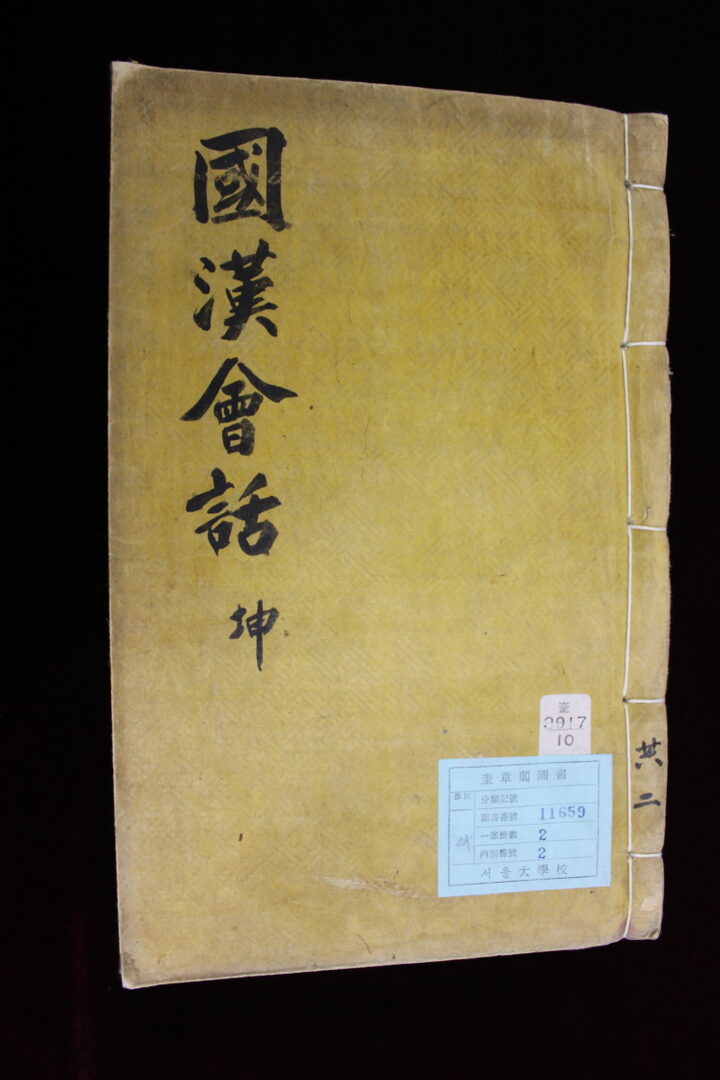 國漢會話 坤
奎
3917
10
共二
奎章閣圖書
分類記號
圖書番號 11659
一部冊數 2
內別番號 2
서울大學校